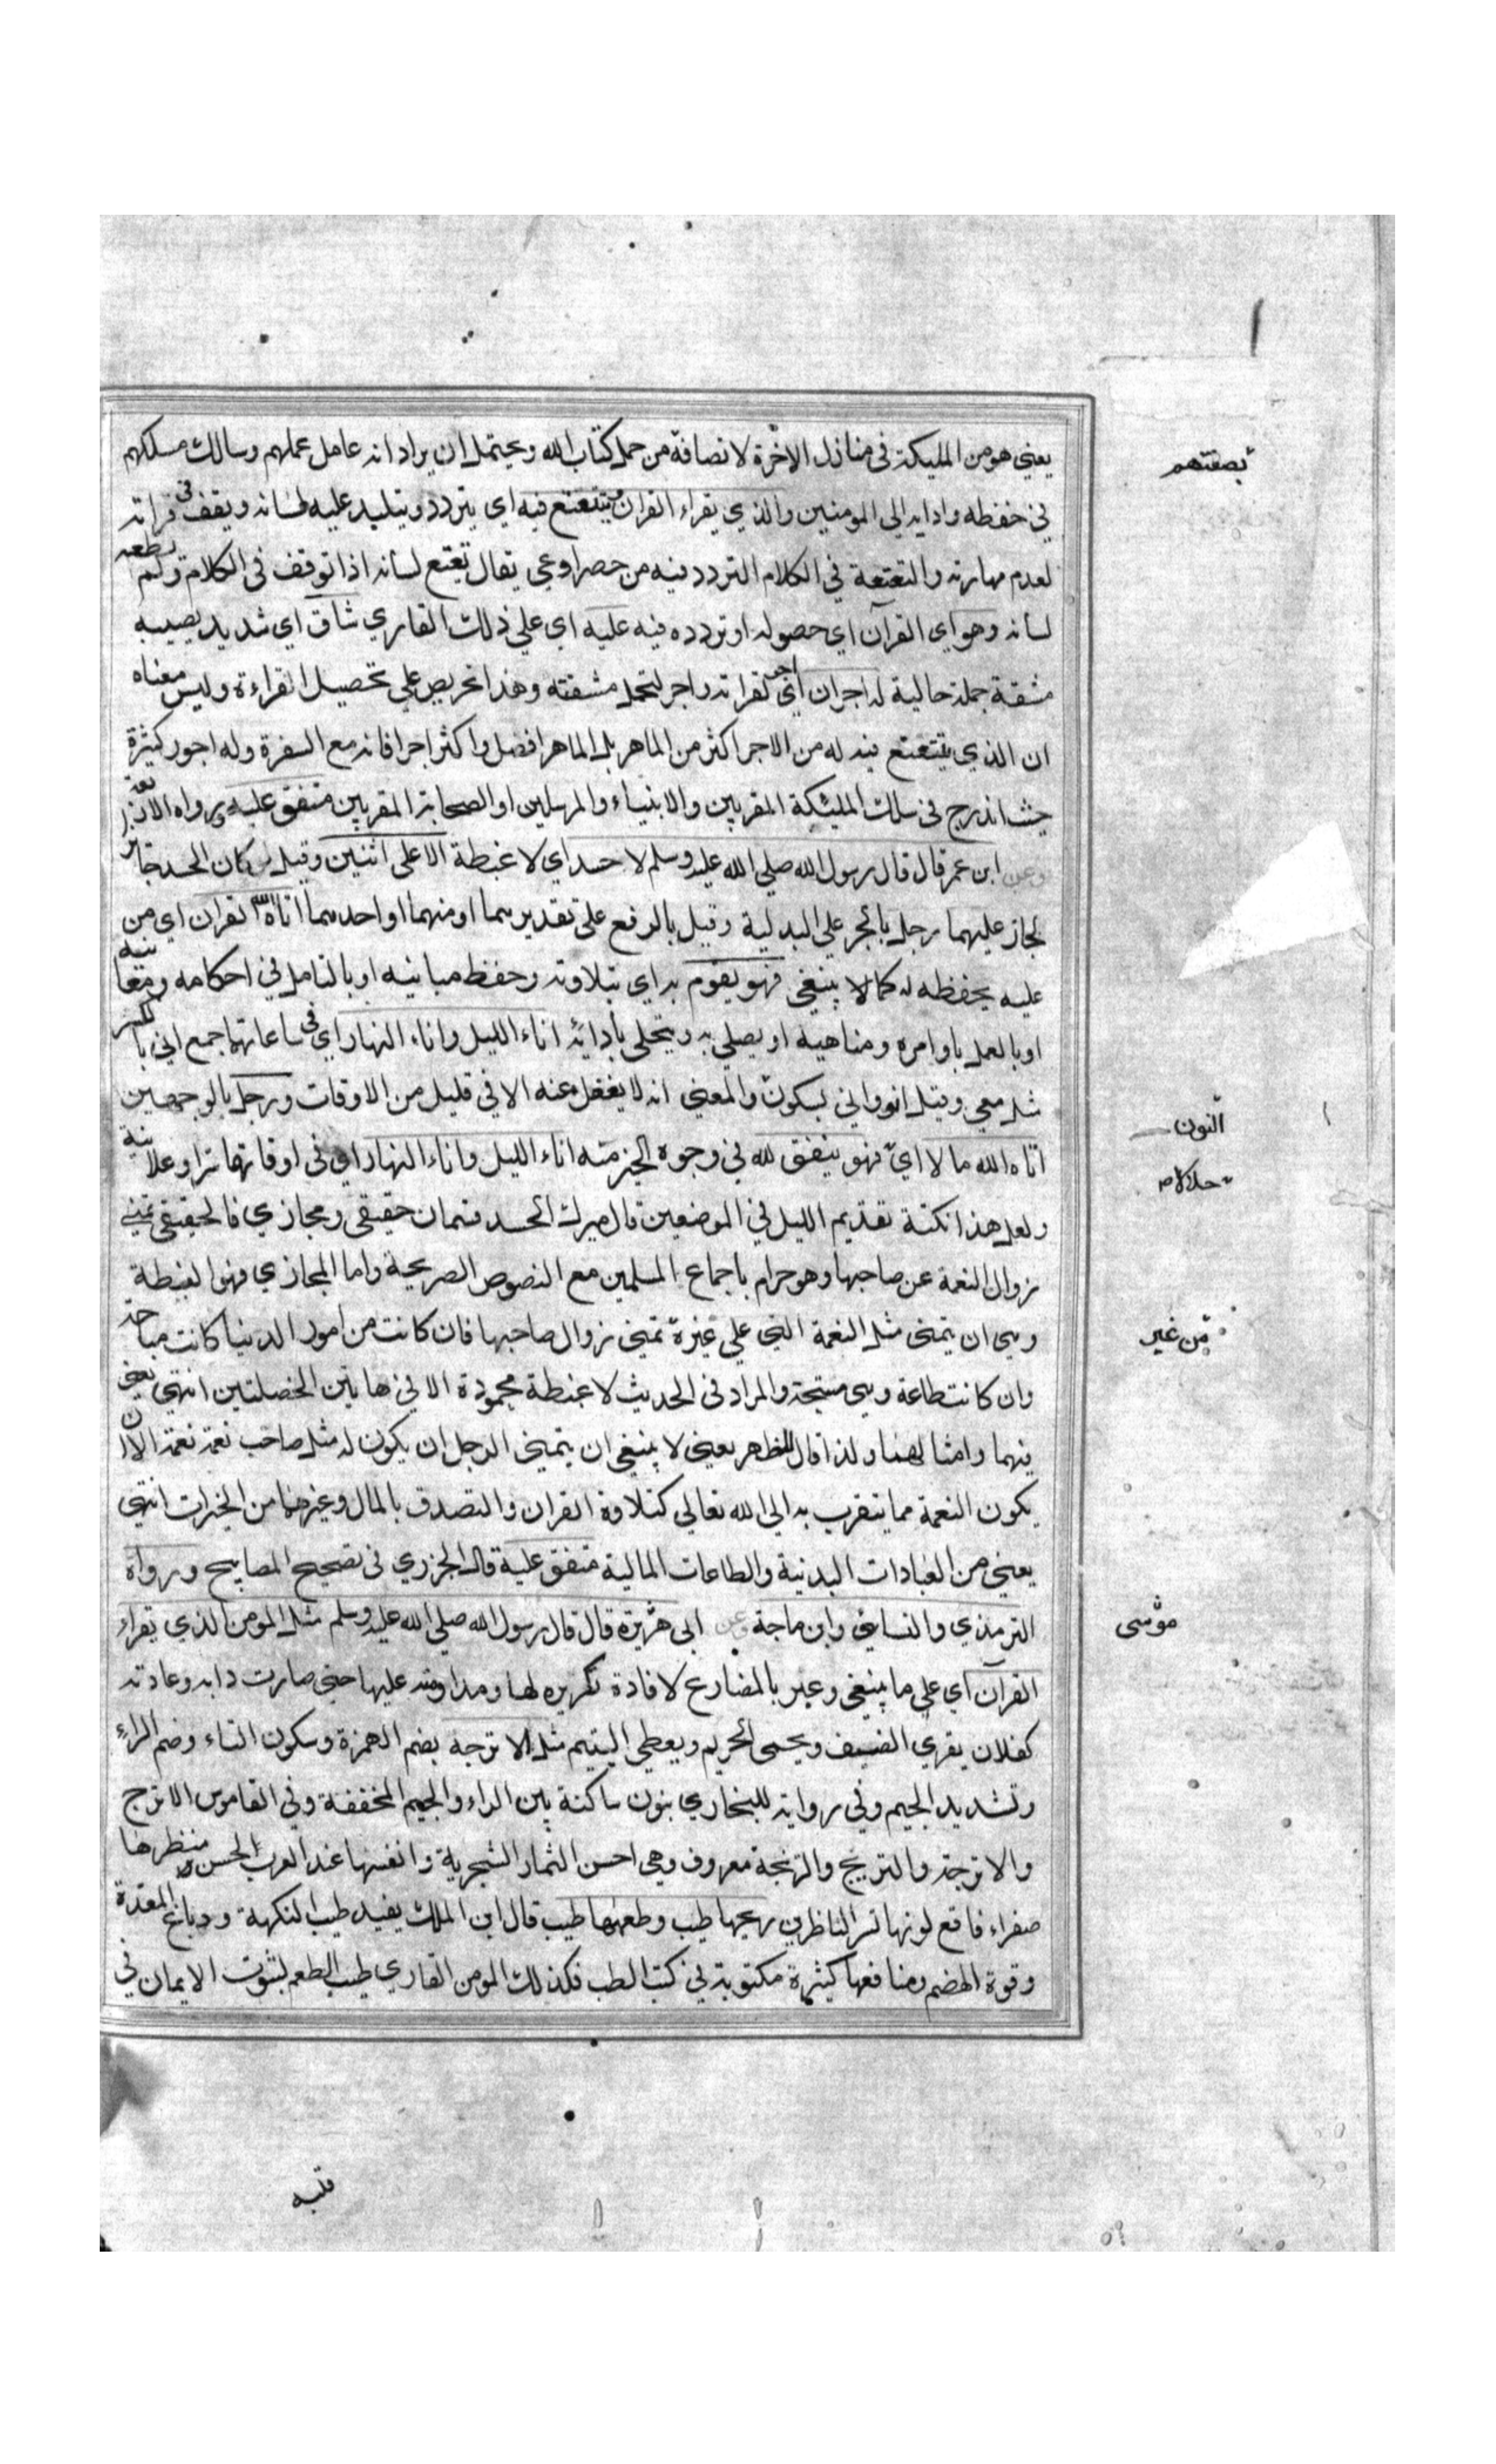 يعني هو من المليكة في منازل الاخرة لاتصافه من حمل كتاب الله ويحتمل ان يراد انه عامل عملهم وسالك مسلكهم
بصفتهم
في حفظه وادايه الي المومنين والذي يقراء القران ويتتعتع فيه اي يتردد ويتلبد عليه لسانه ويقف في قراته
لعدم مهارته والتعتعة في الكلام التردد فيه من حصر اوعي يقال تعتع لسانه اذا توقف في الكلام ولم يطعه
لسانه وهو اي القرآن اي حصوله او تردده فيه عليه اي علي ذلك القاري شاق اي شديد يصيبه
مشقة جملة حالية له اجران اي اجر لقراته واجر لتحمل مشقته وهذا تحريص علي تحصيل القراءة وليس معناه
ان الذي يتتعتع فيه له من الاجر اكثر من الماهر بل الماهر افضل واكثر اجرا فانه مع السفرة وله اجور كثيرة
حيث اندرج في سلك المليئكة المقربين والانبياء والمرسلين او الصحابة المقربين متفق عليه ورواه الاربعة
وعن ابن عمر قال قال رسول الله صلي الله عليه وسلم لا حسد اي لا غبطة الا علي اثنين وقيل لو كان الحسد جائز
لجاز عليهما رجل بالجر علي البدلية وقيل بالرفع علي تقدير هما او منهما او احدهما اتاه الله القران اي من
عليه بحفظه له كما لا ينبغي فهو يقوم به اي بتلاوته وحفظ مبانيه او بالتامل في احكامه ومعانيه
او بالعمل باوامره ومناهيه او يصلي به ويتحلي بادائه اناء الليل واناء النهار اي في ساعاتهما جمع اني بالكسر
مثل معي وقيل انو واني بسكون والمعني انه لا يغفل عنه الا في قليل من الاوقات ورجل بالوجهين
النون
اتاه الله مالا اي فهو ينفق لله في وجوه الخير منه اناء الليل واناء النهار اي في اوقاتهما سرا وعلانية
حلالا
ولعل هذا نكتة تقديم الليل في الموضعين قال ميرك الحسد قسمان حقيقي ومجازي فالحقيقي تمني
زوال النعمة عن صاحبها وهو حرام باجماع المسلمين مع النصوص الصريحة واما المجازي فهو الغبطة
وهي ان يتمني مثل النعمة التي علي غيره تمني زوال صاحبها فان كانت من امور الدنيا كانت مباحة
من غير
وان كانت طاعة وهي مستحبة والمراد في الحديث لا غبطة محمودة الا في هاتين الخصلتين انتهي يعني
فيهما وامثالهما ولذا قال المظهر يعني لا ينبغي ان يتمني الرجل ان يكون له مثل صاحب نعمة نعمة الا ان
يكون النعمة مما يتقرب به الي الله تعالي كتلاوة القران والتصدق بالمال وغيرهما من الخيرات انتهي
يعني من العبادات البدنية والطاعات المالية متفق عليه قال الجزري في تصحيح المصابيح ورواه
الترمذي والنسائي وابن ماجة وعن ابي هريرة قال قال رسول الله صلي الله عليه وسلم مثل المومن الذي يقراء
موسى
القرآن اي علي ما ينبغي وعبر بالمضارع لافادة تكريره لها ومداومته عليها حتي صارت دابه وعادته
كفلان يقري الضيف ويحمي الحريم ويعطي اليتيم مثل الاترجة بضم الهمزة وسكون التاء وضم الراء
وتشديد الجيم وفي رواية للبخاري بنون ساكنة بين الراء والجيم المخففة وفي القاموس الاترج
والاترجة والترنج والترنجة معروف وهي احسن الثمار الشجرية وانفسها عند العرب لحسن منظرها
صفراء فاقع لونها تسر الناظرين ريحها طيب وطعمها طيب قال ابن الملك يفيد طيب النكهة ودباغ المعدة
وقوة الهضم ومنافعها كثيرة مكتوبة في كتب الطب فكذلك المومن القاري طيب الطعم لثبوت الايمان في
قلبه